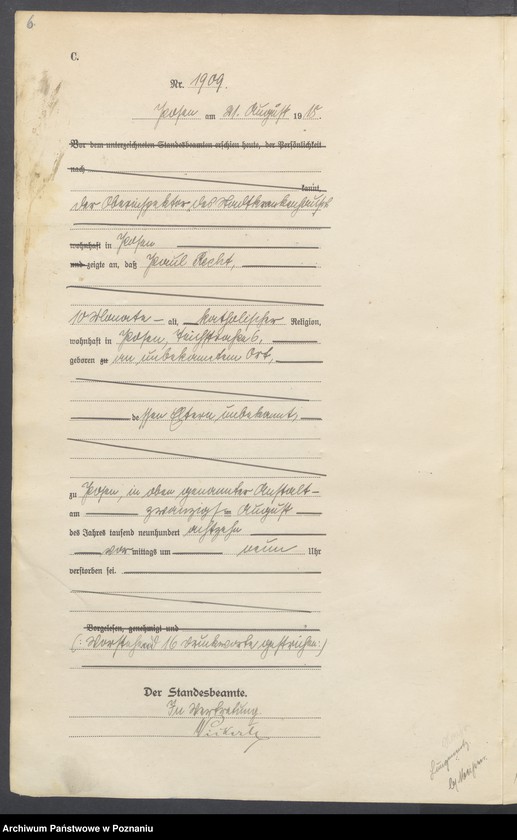 6.
C.
Nr. 1909.
Posen am 21. August 19 18.
Vor dem unterzeichneten Standesbeamten erschien heute, der Persönlichkeit
nach
kannt,
der Oberinspektor des Stadtkrankenhauses
wohnhaft in Posen
und zeigte an, daß Paul Recht,
10 Monate alt, katholischer Religion,
wohnhaft in Posen, Teichstraße 6,
geboren zu an unbekanntem Ort,
dessen Eltern unbekannt,
zu Posen, in oben genannter Anstalt
am zwanzigsten August
des Jahres tausend neunhundert achtzehn
vor mittags um neun Uhr
verstorben sei.
Vorgelesen, genehmigt und
(: Vorstehend 16 Druckworte gestrichen :)
Der Standesbeamte.
In Vertretung
Archiwum Państwowe w Poznaniu